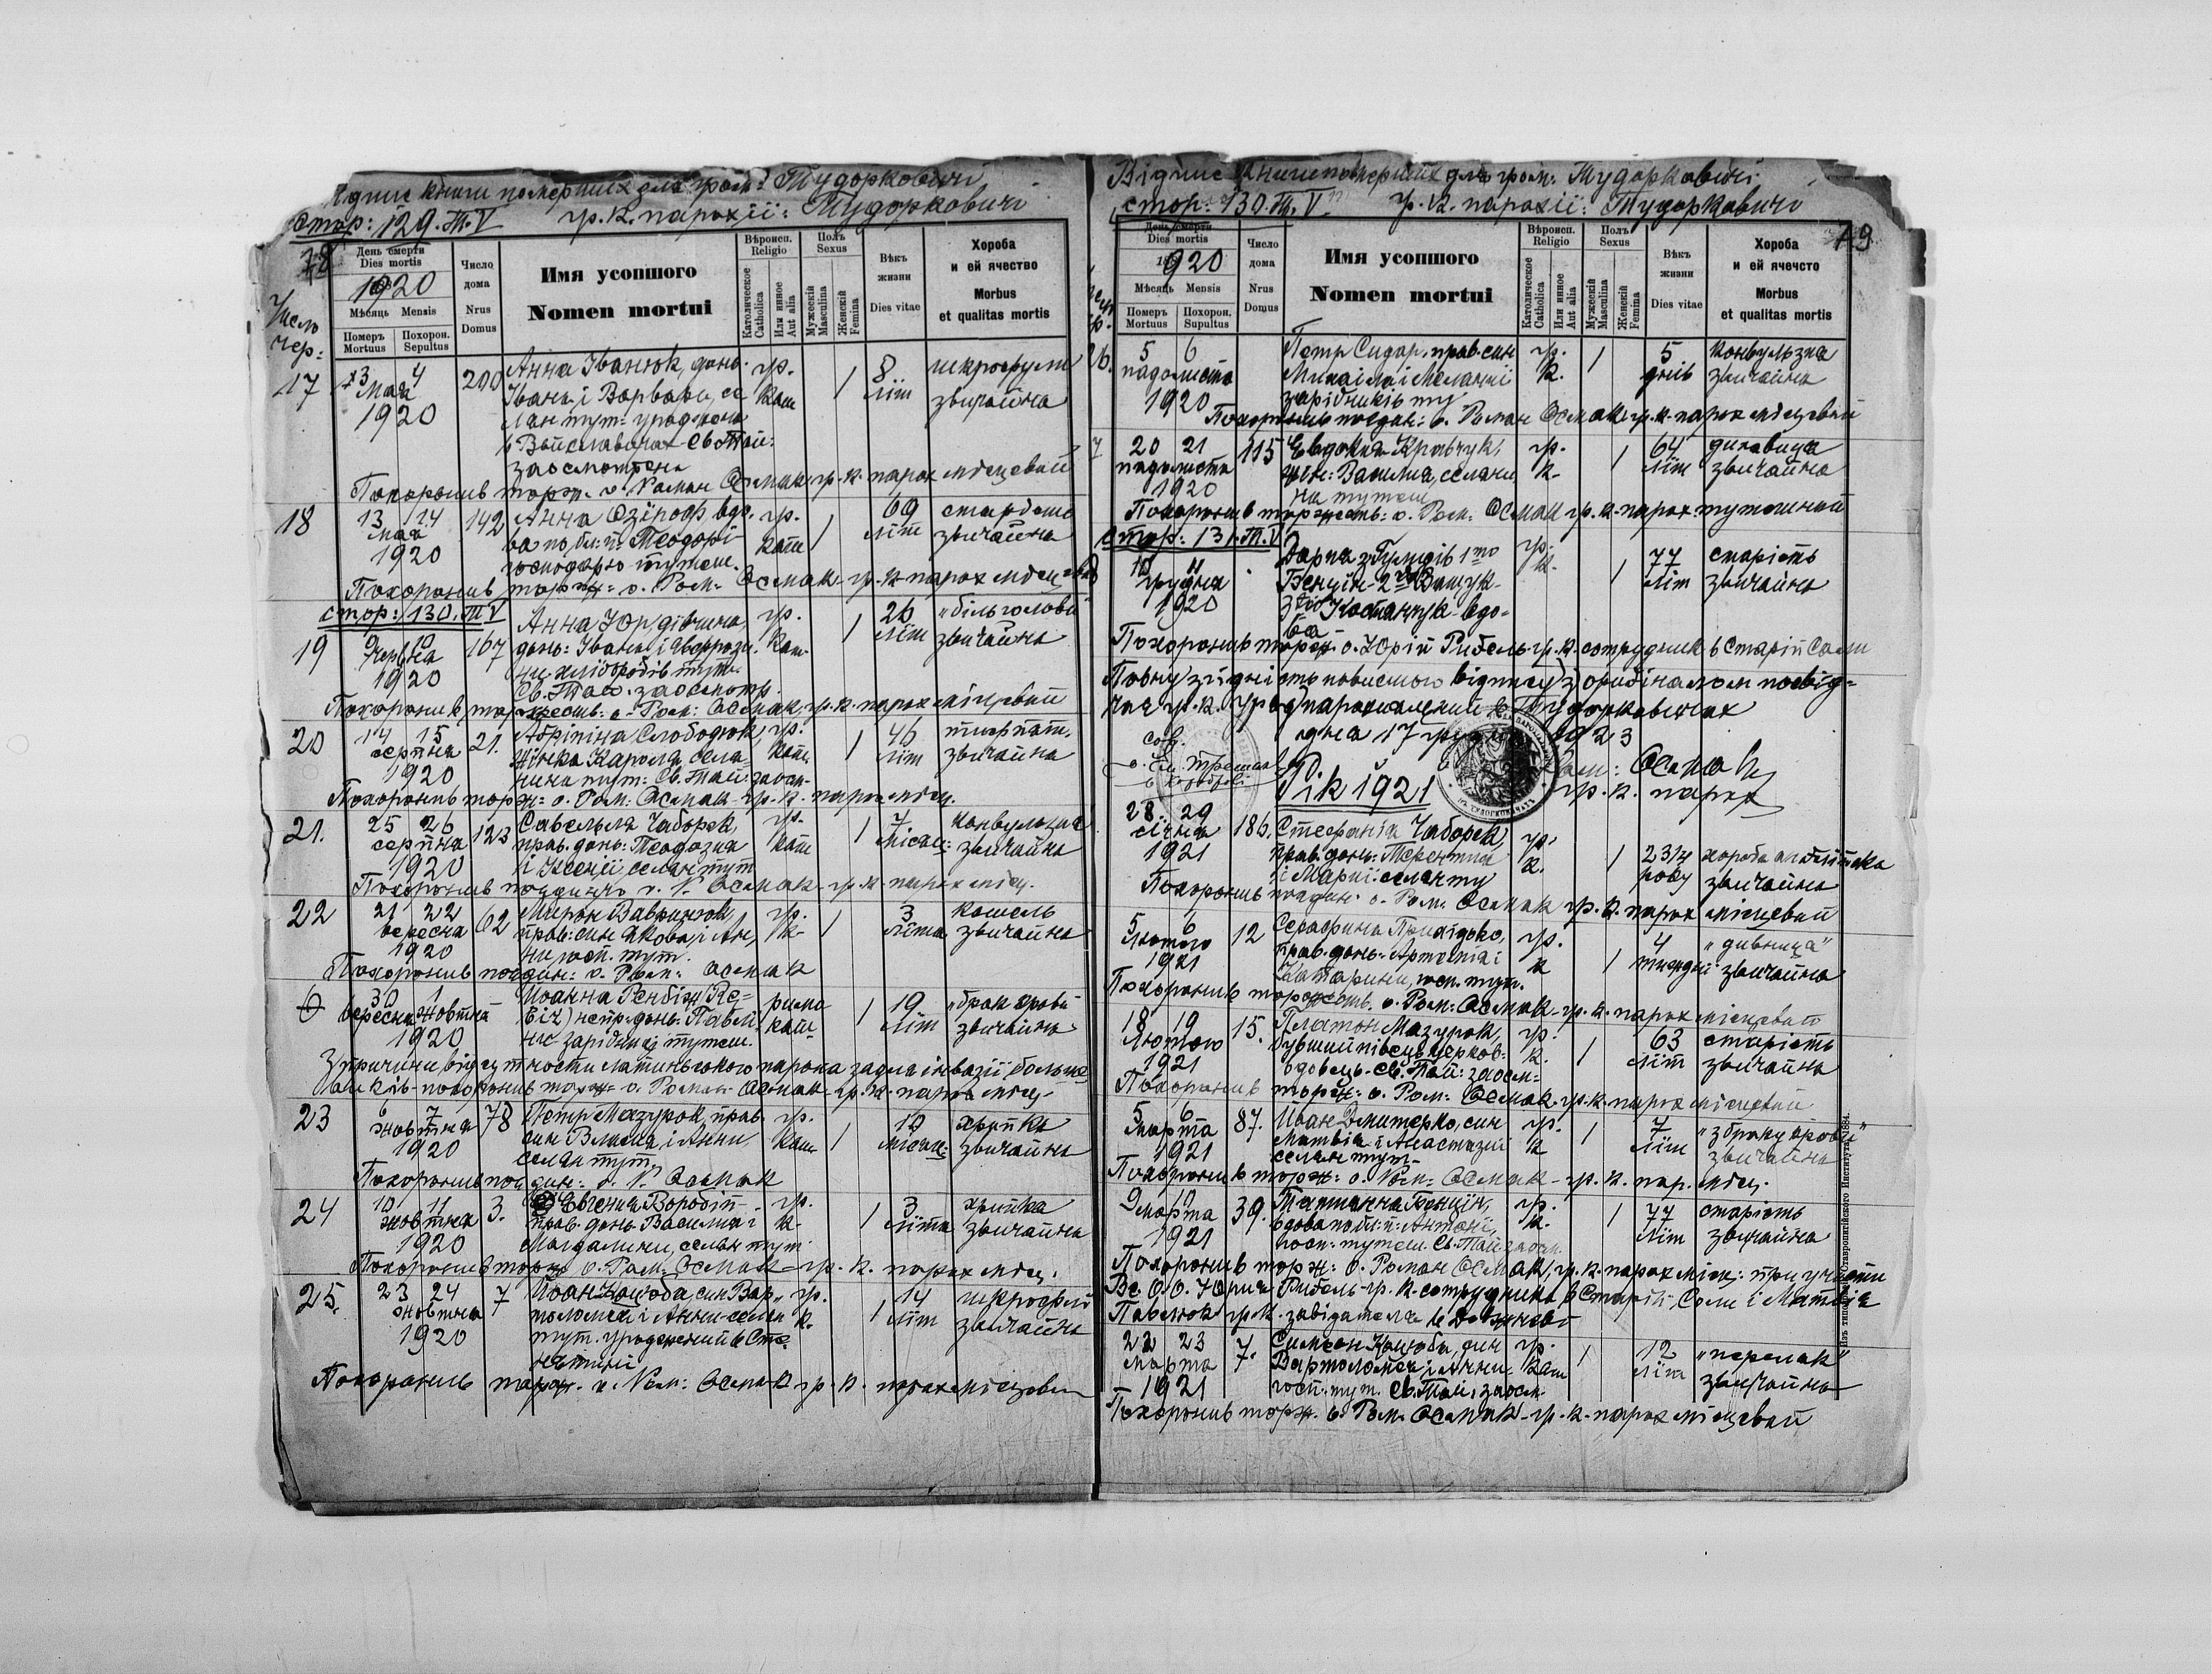 книги померших для гром: Тудорковичі
стор: 129. Т. V гр. к. парохії: Тудорковичі
78
Число
чер:
День смерти
Dies mortis
1920
Мѣсяць Mensis
Померъ
Mortuus
Похорон.
Sepultus
Число
дома
Nrus
Domus
Имя усопшого
Nomen mortui
Вѣроисп.
Religio
Католическое
Catholica
Или инное
Aut alia
Полъ
Sexus
Мужескій
Masculina
Женскій
Femina
Вѣкъ
жизни
Dies vitae
Хороба
и ей ячество
Morbus
et qualitas mortis
17 3 4 200 Анна Іванюк, донь. гр. 1 8
Мая Івана і Варвари, се кат літ звичайна
1920 лян тут. уроджена
Св. Тай:
заосмотрена
Похоронив торж. о. Роман Осмак гр. к. парох місцевий
18 13 14 142 Анна вдо- гр. 1 69
Мая ва по бл: п: Теодорі кат літ звичайна
1920 господарю тутеш.
Похоронив торж: о. Ром: Осмак гр. к. парох місцевий
стор: 130. Т. V
19 9 10 167 Анна Юр дівчина, гр. 1 26 "біль голови"
Червня донь: Івана і кат. літ звичайна
1920 хліборобів тут.
Св. Тай. заосмотр.
Похоронив торжеств: о. Ром: Осмак гр. к. парох місцевий
20 14 15 21. Слободюк, гр. 1 46
серпня жінка Кароля селя- кат. літ звичайна
1920 нина тут: Св. Тай. заосм-
Похоронив торж: о. Ром. Осмак гр. к. парох місц.
21. 25 26 123 Чаборек, гр. 1 7 конвульзия
серпня прав. донь: Теодозия кат місяц: звичайна
1920 і Ксенії селян тут
Похоронив поєдинчо о. Р. Осмак гр. к. парох місц.
22 21 22 62 Мирон Вавринюк, гр. 1 3 кашель
вересня прав: син Якова і Ан- к. літа звичайна
1920 ни госп. тут.
Похоронив поєдин: о. Ром: Осмак
30 1 Иоанна римо 1 19 "брак крови"
вересня жовтня непр. донь: Павлі- кат літ звичайна
1920 ни зарібниці тутеш.
З причини відсутности латинського пароха задля інвазії больше-
виків похоронив торж о. Роман Осмак гр. к. парох місц.
23 6 7 78 Петр Мазурок, прав. гр. 1 10 хрипка
жовтня син і Анни кат. місяц: звичайна
1920 селян тут.
Похоронив поєдин: о. Р. Осмак
24 10 11 3. Евгения Воробій гр. 1 3 хрипка
жовтня прав. донь Василия і к. літа звичайна
1920 Магдалини, селян тут.
Похоронив торж о. Ром: Осмак гр. к. парох місц.
25. 23 24 7 Йоан Коцюба, син Вар- гр. 1 14
жовтня толомея і Анни селян к. літ звичайна
1920 тут. уроджений в Сте-
Похоронив торж. о. Ром: Осмак гр. к. парох місцевий
Відпис книги померших для гром: Тудорковичі
стор: 130. Т. V. гр. к. парохії: Тудорковичі
79
День смерти
Dies mortis
1920
Мѣсяць Mensis
Померъ
Mortuus
Похорон.
Supultus
Число
дома
Nrus
Domus
Имя усопшого
Nomen mortui
Вѣроисп.
Religio
Католическое
Catholica
Или инное
Aut alia
Полъ
Sexus
Мужескій
Masculina
Женскій
Femina
Вѣкъ
жизни
Dies vitae
Хороба
и ей ячечсто
Morbus
et qualitas mortis
26. 5 6 Петр Сидор, прав. син гр. 1 5 конвульзия
падолиста Михаіла і Меланиї к. днів звичайна
1920 зарібників ту
Похоронив поєдин: о. Роман Осмак гр. к. парох місцевий
7 20 21 115 Евдокия Кравчук, гр. 1 64 дихавиця
падолиста жін: Василия, селяни к. літ звичайна
1920 на тутеш
Похоронив торжеств: о. Ром: Осмак гр. к. парох тутешний
стор: 131. Т. V
10 11 Дарка гр. 1 77 старість
грудня к. літ звичайна
1920 Костанчук вдо-
ва
Похоронив торж. о. Юрій Рибель гр. к. сотрудник в Старій Соли
Повну згідність повисшого відпису з оригіналом посвід-
чає гр. к. уряд парохияльний в Тудорковичах
дня 17 1923
Ром: Осмак
гр. к. парох
Рік 1921
28 29 186. Стефанія Чаборек, гр. 1 2 3/4 хороба
січня прав. донь: Терентия к. року звичайна
1921 і Марії селян ту
Похоронив поєдин: о. Ром. Осмак гр. к. парох місцевий
5 6 12 Серафина Прихідько, гр. 1 4 "дивниця"
Лютого прав. донь: Артемія і к тиждні звичайна
1921 Катарини, госп. тут.
Похоронив торжеств. о. Ром: Осмак гр. к. парох місцевий
18 19 15. Платон Мазурок, гр. 1 63 старість
Лютого бувший півець церков: к. літ звичайна
1921 вдовець. Св: Тай: заосм-
Похоронив торж: о. Ром: Осмак гр. к. парох місцевий
5 6 87. Иоан Дмитерко, син гр. 1 7 "з браку крови"
Марта Матвія і Анастазиї к літ звичайна
1921 селян тут-
Похоронив торж: о. Ром: Осмак гр. к. пар. місц.
9 10 39. Татианна гр. 1 77 старість
Марта вдова по бл: п: Антоні, к. літ звичайна
1921 госп: тутеш. Св. Тай заосм.
Похоронив торж: о. Роман Осмак, гр. к. парох місц: при участи
Вс. О. О. Юрия Рибель гр. к. сотрудника в Старій Соли і Матвія
Павлюк гр. к. завідателя в
22 23 7. Симеон Коцюба, син гр. 1 12 "переляк"
Марта Вартоломея і Анни кат літ звичайна
1921 госп. тут. Св. Тай. заосм.
Похоронив торж. о. Ром: Осмак гр. к. парох місцевий
Изъ типографіи Ставропигійского Института. 1884.